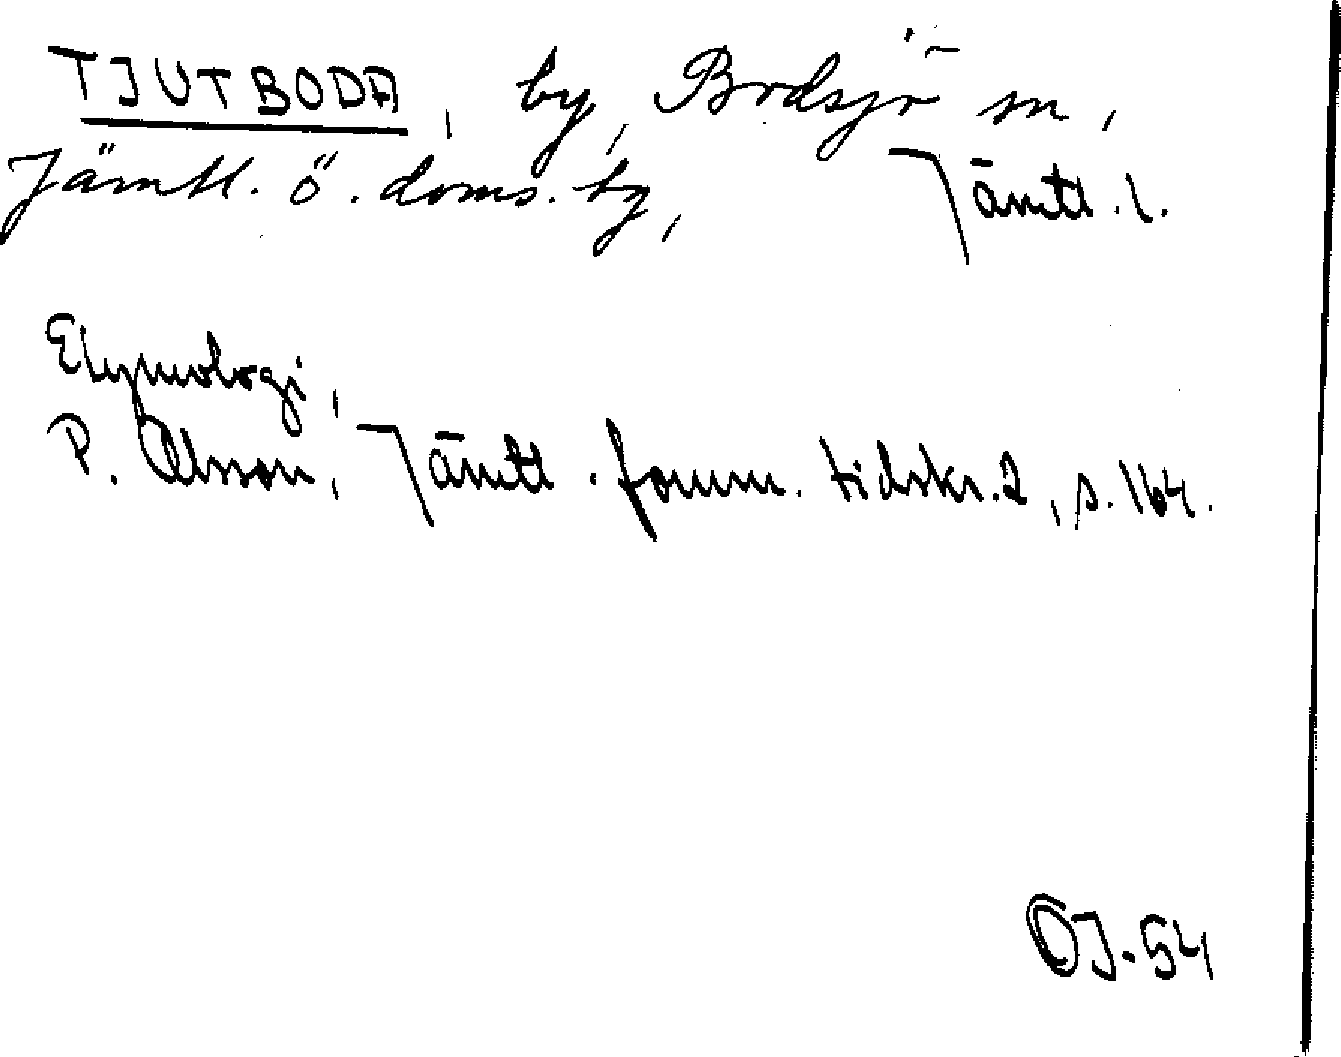 TJUTBODA, by, Bodsjö sn,
Jämtl. ö. doms. by, Jämtl. l.
Etymologi,
P. Olsson, Jämtl. fornm. tidskr. 2, s. 164.
OJ. 54